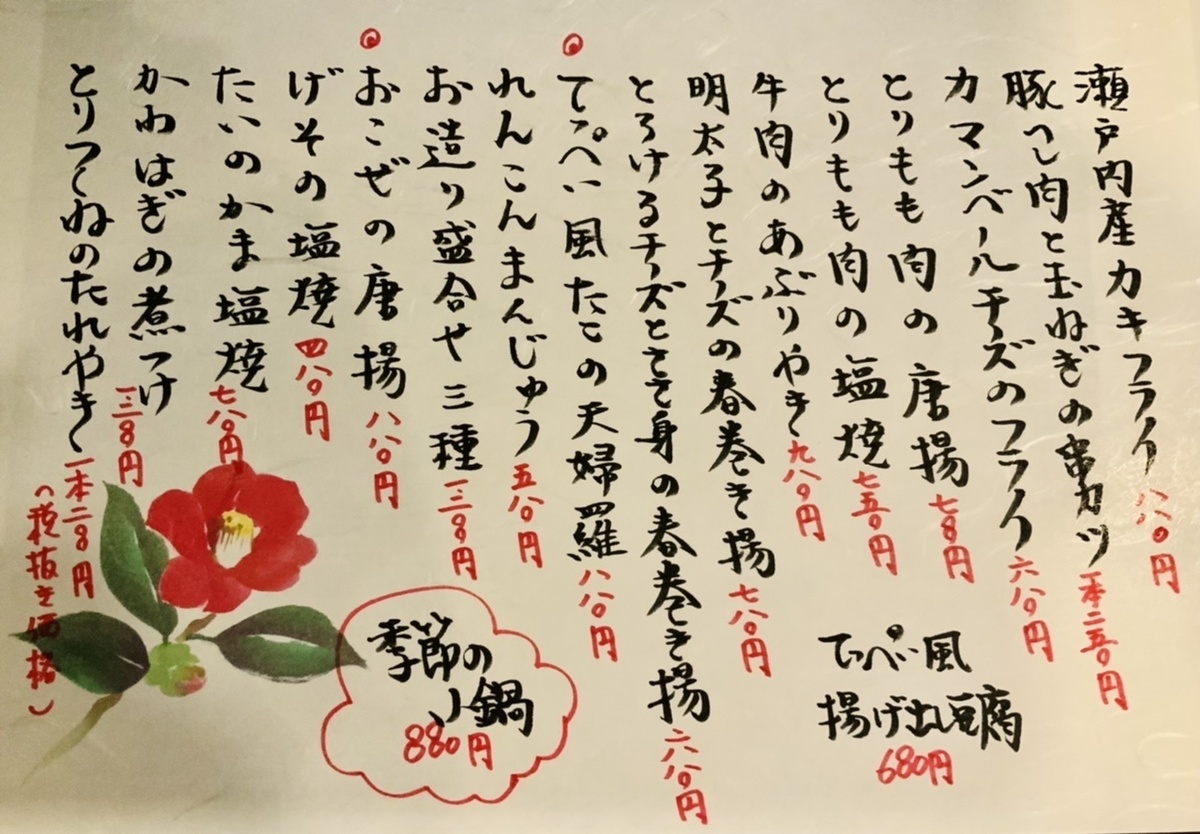 瀬戸内産カキフライ 八八〇円
豚ヘレ肉と玉ねぎの串カツ 一本二五〇円
カマンベールチーズのフライ 六八〇円
とりもも肉の唐揚 七八〇円
とりもも肉の塩焼 七五〇円
牛肉のあぶりやき 九八〇円
明太子とチーズの春巻き揚 七八〇円
とろけるチーズとささ身の春巻き揚 六八〇円
てっぺい風たこの天婦羅 八八〇円
れんこんまんじゅう 五八〇円
お造り盛合せ三種 一三八〇円
おこぜの唐揚 八八〇円
げその塩焼 四八〇円
たいのかま塩焼 七八〇円
かわはぎの煮つけ 一三八〇円
とりつくねのたれやき 一本二八〇円
（税抜き価格）
てっぺい風
揚げ出し豆腐
680円
季節の
小鍋
880円